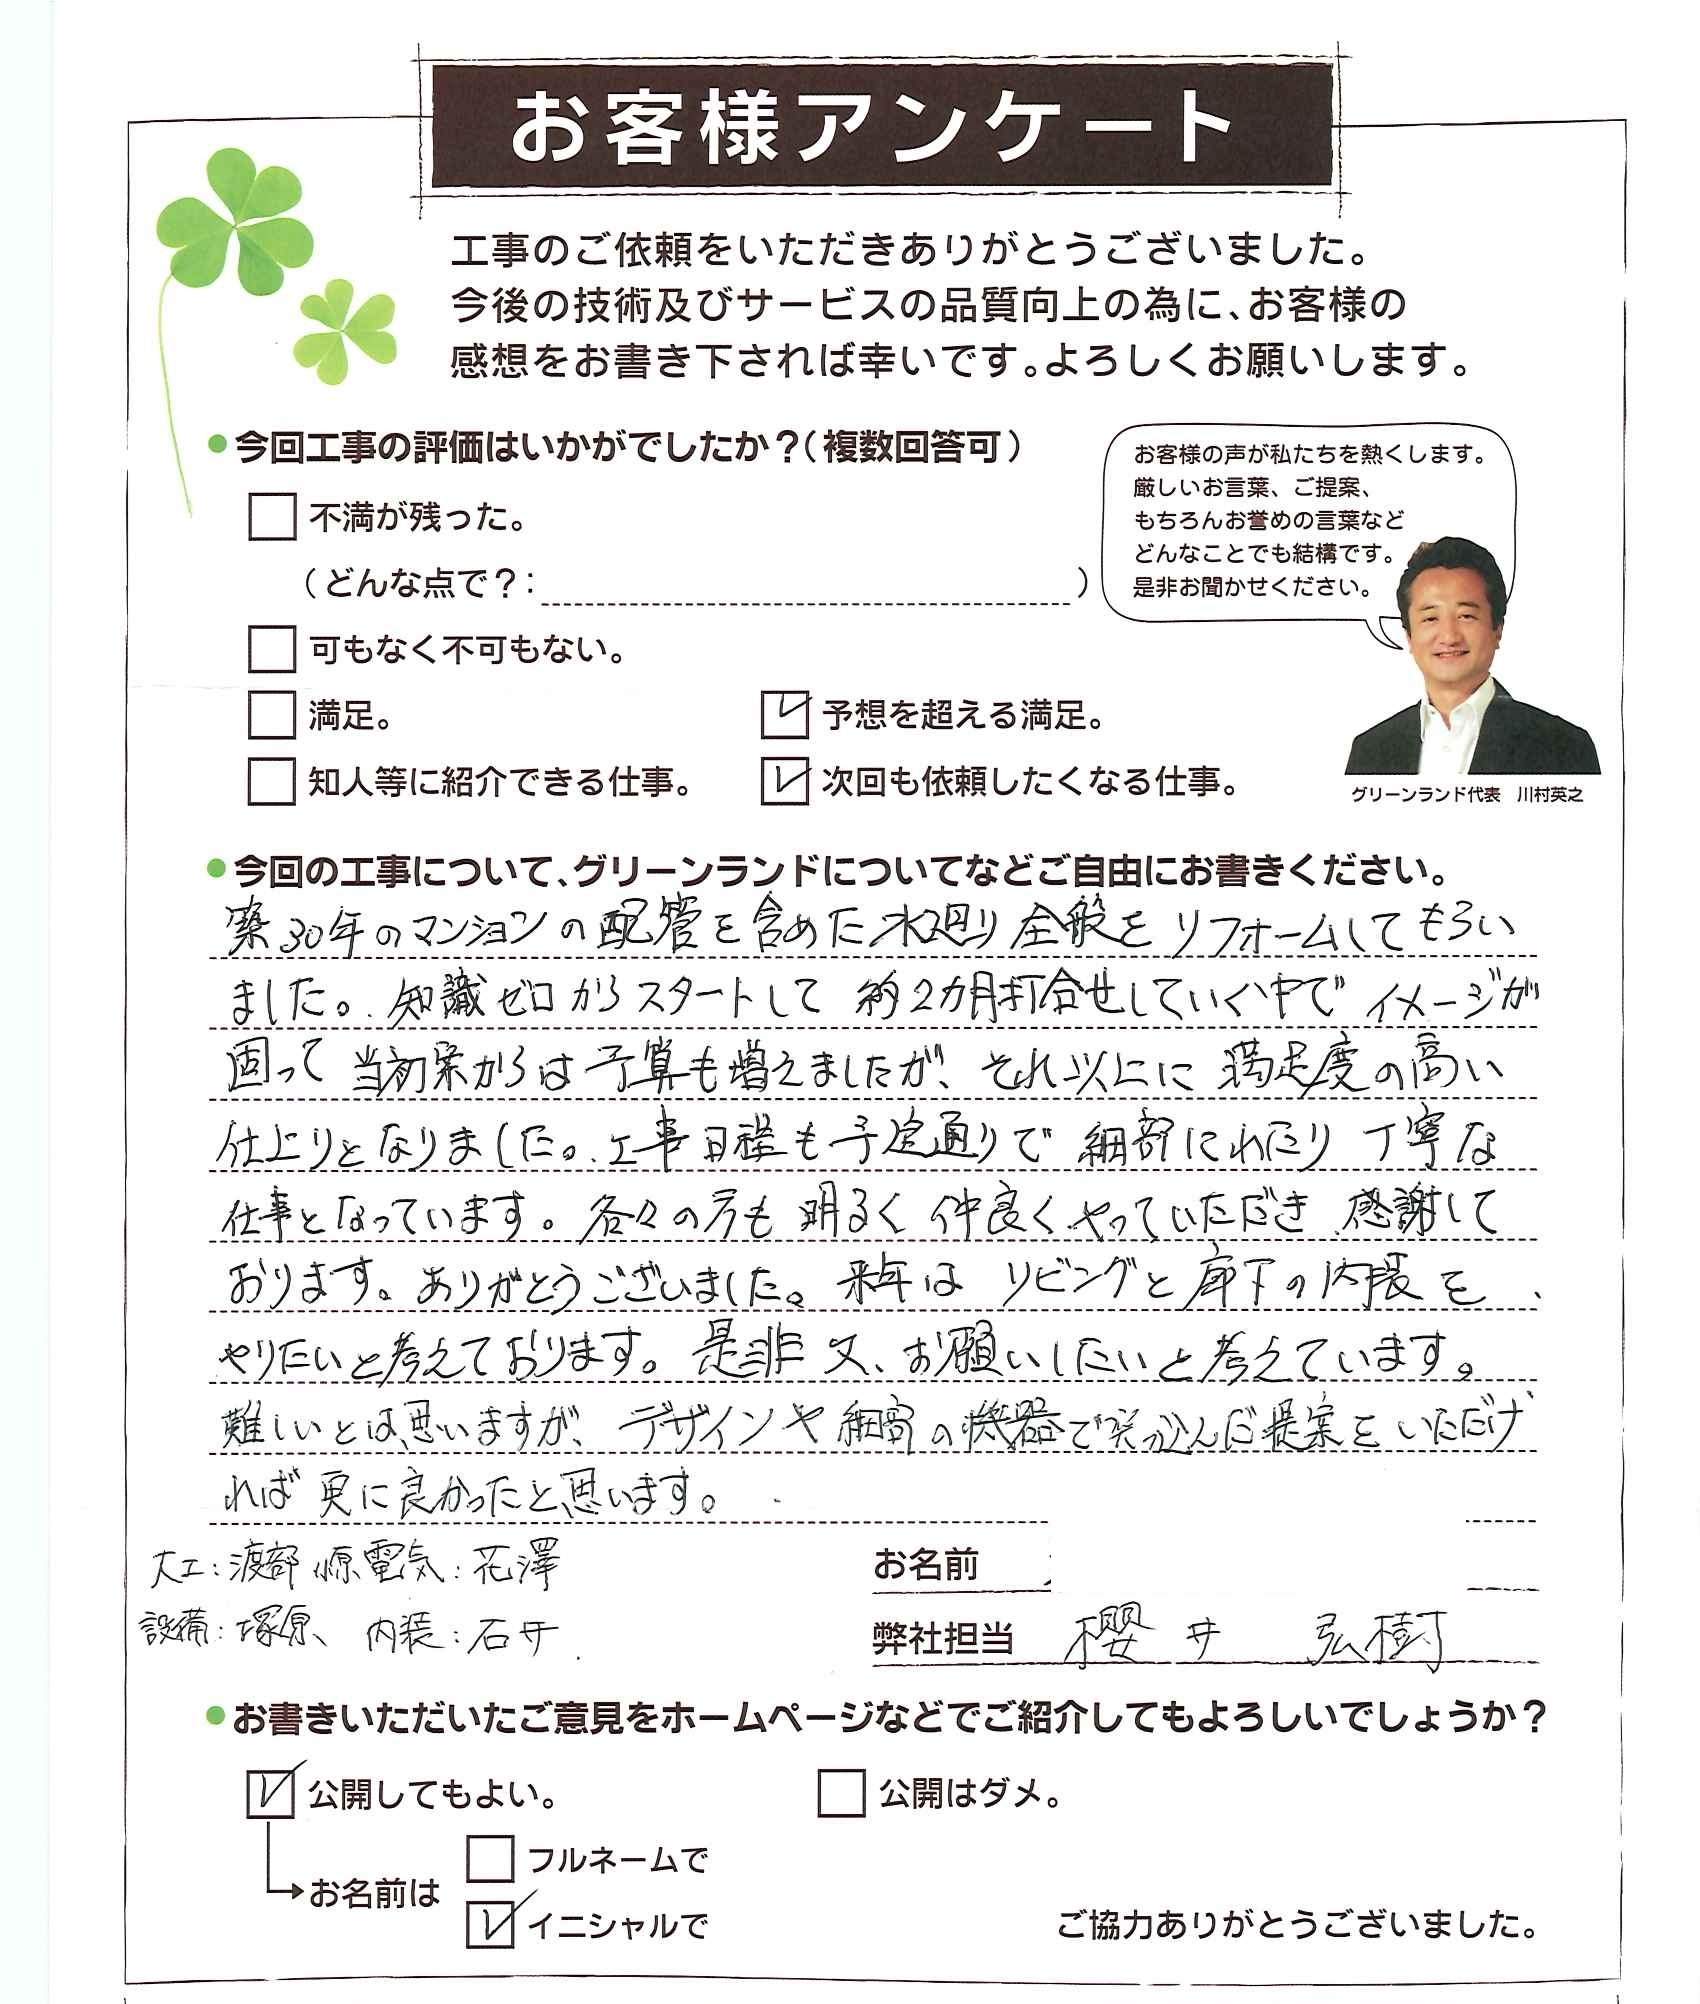 お客様アンケート
工事のご依頼をいただきありがとうございました。
今後の技術及びサービスの品質向上の為に、お客様の
感想をお書き下されば幸いです。よろしくお願いします。
●今回工事の評価はいかがでしたか？（複数回答可）
不満が残った。
（どんな点で？：　）
可もなく不可もない。
満足。
予想を超える満足。
知人等に紹介できる仕事。
次回も依頼したくなる仕事。
お客様の声が私たちを熱くします。
厳しいお言葉、ご提案、
もちろんお誉めの言葉など
どんなことでも結構です。
是非お聞かせください。
グリーンランド代表　川村英之
●今回の工事について、グリーンランドについてなどご自由にお書きください。
築30年のマンションの配管を含めた水廻り全般をリフォームしてもらい
ました。知識ゼロからスタートして約2カ月打合せしていく中でイメージが
固って当初案からは予算も増えましたが、それ以上に満足度の高い
仕上りとなりました。工事日程も予定通りで細部にわたり丁寧な
仕事となっています。各々の方も明るく仲良くやっていただき感謝して
おります。ありがとうございました。来年はリビングと廊下の内装を
やりたいと考えております。是非又、お願いしたいと考えています。
難しいとは思いますが、デザインや細部の機器で突っ込んだ提案をいただけ
れば更に良かったと思います。
大工：渡部 源 電気：花澤
設備：塚原、内装：石井
お名前
弊社担当　櫻井　弘樹
●お書きいただいたご意見をホームページなどでご紹介してもよろしいでしょうか？
公開してもよい。
公開はダメ。
お名前は
フルネームで
イニシャルで
ご協力ありがとうございました。